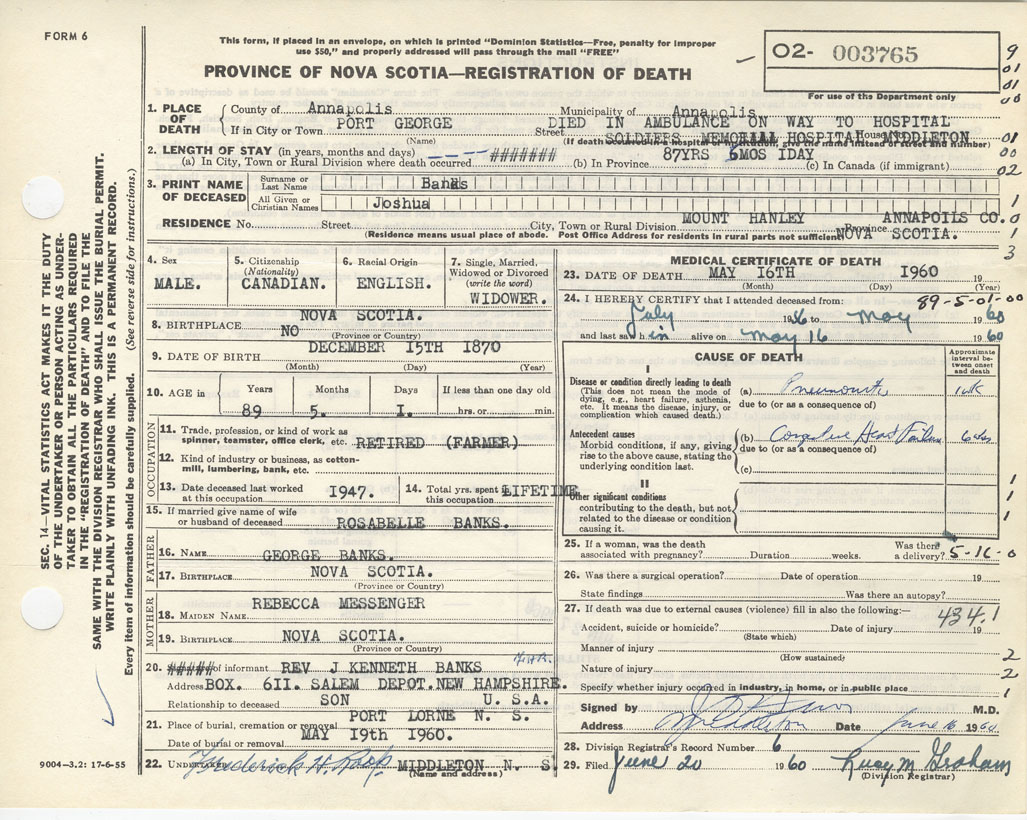 FORM 6
This form, if placed in an envelope, on which is printed "Dominion Statistics—Free, penalty for improper
use $50," and properly addressed will pass through the mail "FREE"
PROVINCE OF NOVA SCOTIA—REGISTRATION OF DEATH
02- 003765
For use of the Department only
9
01
01
00
1. PLACE OF DEATH
County of Annapolis Municipality of Annapolis
If in City or Town PORT GEORGE Street DIED IN AMBULANCE ON WAY TO HOSPITAL
(Name) SOLDIERS MEMORIAL HOSPITAL MIDDLETON House
(If death occurred in a hospital or institution, give the name instead of street and number)
01
2. LENGTH OF STAY (in years, months and days)
(a) In City, Town or Rural Division where death occurred ####### (b) In Province 87YRS 6MOS IDAY (c) In Canada (if immigrant)
00
02
3. PRINT NAME OF DECEASED
Surname or Last Name Banks
All Given or Christian Names Joshua
1
RESIDENCE No. Street City, Town or Rural Division MOUNT HANLEY Province ANNAPOILS CO.
0
(Residence means usual place of abode. Post Office Address for residents in rural parts not sufficient) NOVA SCOTIA.
1
3
4. Sex
MALE.
5. Citizenship
(Nationality)
CANADIAN.
6. Racial Origin
ENGLISH.
7. Single, Married,
Widowed or Divorced
(write the word)
WIDOWER.
8. BIRTHPLACE NOVA SCOTIA.
NO (Province or Country)
9. DATE OF BIRTH DECEMBER I5TH I870
(Month) (Day) (Year)
10. AGE in
Years Months Days If less than one day old
89 5. I. hrs. or min.
OCCUPATION
11. Trade, profession, or kind of work as
spinner, teamster, office clerk, etc. RETIRED (FARMER)
12. Kind of industry or business, as cotton-
mill, lumbering, bank, etc.
13. Date deceased last worked
at this occupation I947.
14. Total yrs. spent in
this occupation LIFETIME
15. If married give name of wife
or husband of deceased ROSABELLE BANKS.
FATHER
16. NAME GEORGE BANKS.
17. BIRTHPLACE NOVA SCOTIA.
(Province or Country)
MOTHER
18. MAIDEN NAME REBECCA MESSENGER
19. BIRTHPLACE NOVA SCOTIA.
(Province or Country)
20. ##### of informant REV J KENNETH BANKS
Address BOX. 6II. SALEM DEPOT.NEW HAMPSHIRE.
Relationship to deceased SON U. S.A.
21. Place of burial, cremation or removal PORT LORNE N. S.
Date of burial or removal MAY I9th I960.
22. UNDERTAKER Frederick H. Roop MIDDLETON N. S.
(Name and address)
MEDICAL CERTIFICATE OF DEATH
23. DATE OF DEATH MAY I6TH I960 19
(Month) (Day) (Year)
24. I HEREBY CERTIFY that I attended deceased from:
89-5-01-00
July 1956 to May 1960
and last saw him alive on May 16 1960
CAUSE OF DEATH
Approximate
interval be-
tween onset
and death
I
Disease or condition directly leading to death
(This does not mean the mode of
dying, e.g., heart failure, asthenia,
etc. It means the disease, injury, or
complication which caused death.)
(a) Pneumonia 1 wk
due to (or as a consequence of)
Antecedent causes
Morbid conditions, if any, giving
rise to the above cause, stating the
underlying condition last.
(b) Congestive Heart Failure
due to (or as a consequence of)
(c)
II
Other significant conditions
contributing to the death, but not
related to the disease or condition
causing it.
1
1
1
25. If a woman, was the death
associated with pregnancy? Duration weeks. Was there
a delivery?
5-16-0
26. Was there a surgical operation? Date of operation 19
State findings Was there an autopsy?
27. If death was due to external causes (violence) fill in also the following:—
434.1
Accident, suicide or homicide? Date of injury 19
(State which)
Manner of injury
(How sustained)
2
Nature of injury
2
Specify whether injury occurred in industry, in home, or in public place
1
Signed by M.D.
Address Middleton Date June 16 1960
28. Division Registrar's Record Number 6
29. Filed June 20 1960 Lucy M Graham
(Division Registrar)
9004—3.2: 17-6-55
SEC. 14—VITAL STATISTICS ACT MAKES IT THE DUTY
OF THE UNDERTAKER OR PERSON ACTING AS UNDER-
TAKER TO OBTAIN ALL THE PARTICULARS REQUIRED
IN THE "REGISTRATION OF DEATH" AND TO FILE THE
SAME WITH THE DIVISION REGISTRAR WHO SHALL ISSUE THE BURIAL PERMIT.
WRITE PLAINLY WITH UNFADING INK. THIS IS A PERMANENT RECORD.
Every item of information should be carefully supplied. (See reverse side for instructions.)